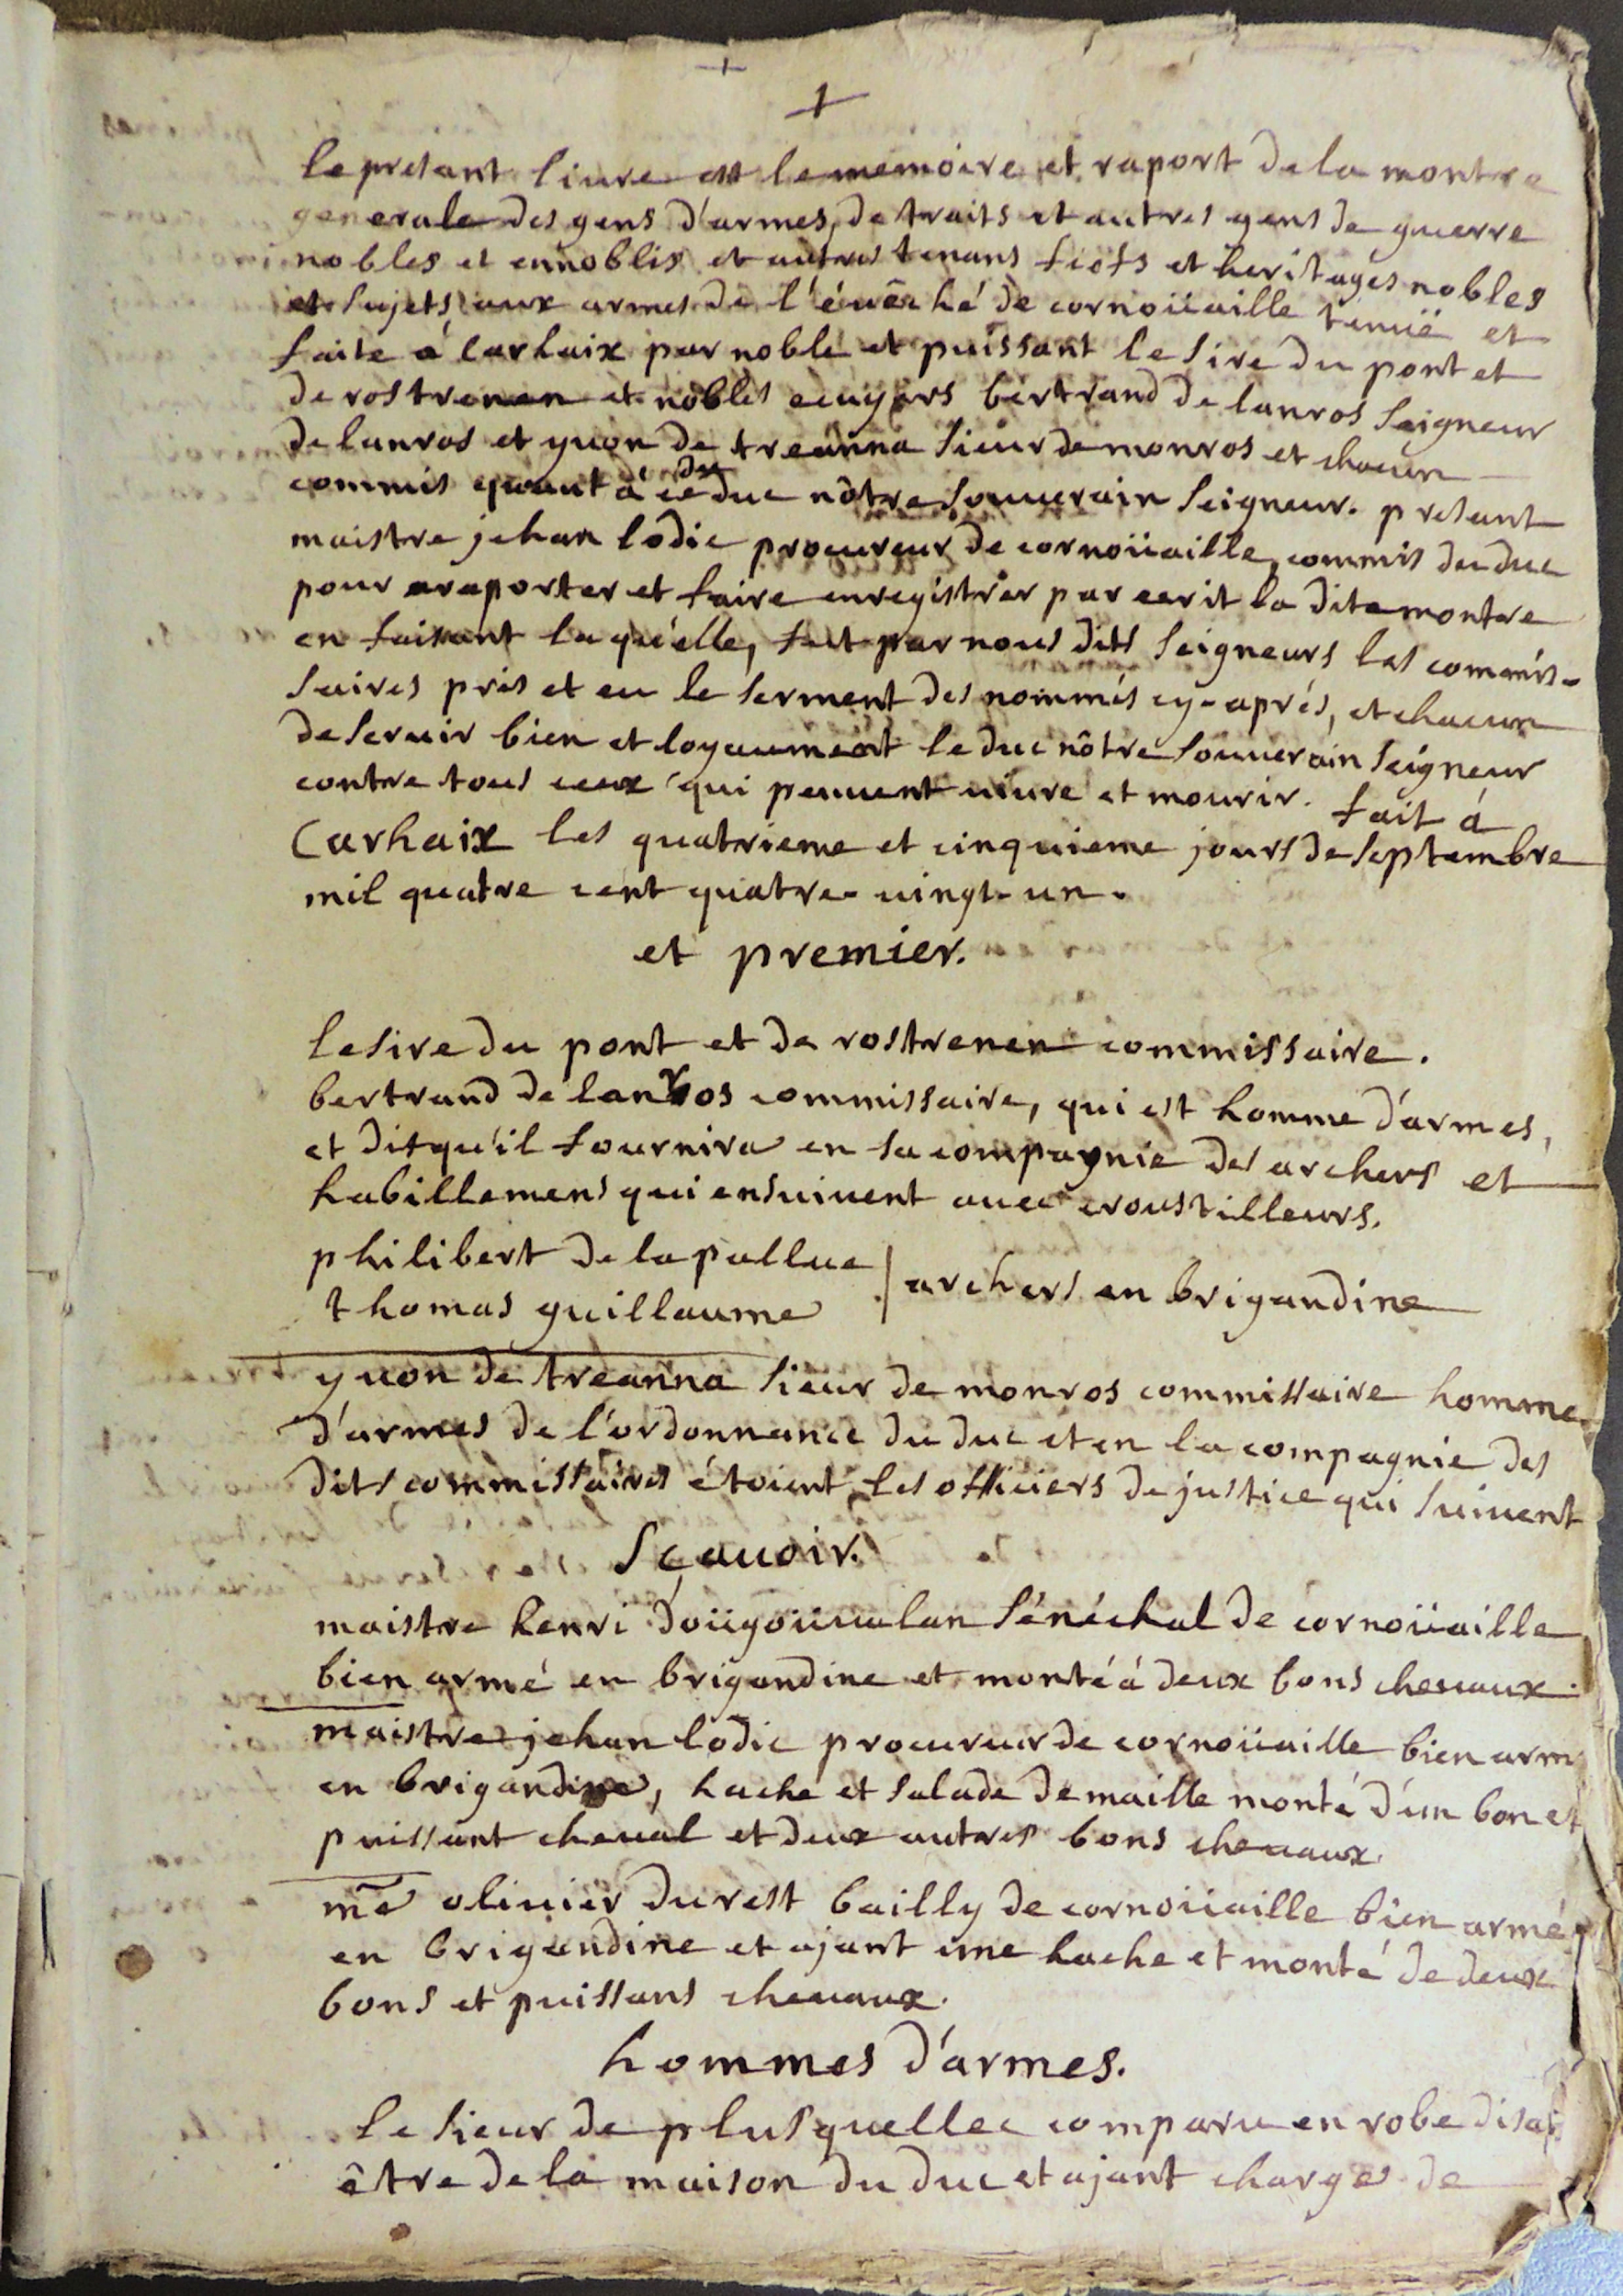 le presant liure est le memoire et raport de la montre
generale des gens d'armes, de traits et autres gens de guerre
nobles et ennoblis et autres tenans fiefs et heritages nobles
et sujets aux armes de l'éuêché de cornoüaille tenuë et
faite à carhaix par noble et puissant le sire du pont et
de rostrenen et nobles ecuyers bertrand de lanros seigneur
de lanros et yuon de treanna sieur de monros et chacun
commis quant à ce du duc nôtre souuerain seigneur. presant
maistre jehan lodic procureur de cornoüaille, commis du duc
pour raporter et faire enregistrer par ecrit la dite montre
en faisant laqu'elle, fut par nous dits seigneurs les commis-
saires pris et eu le serment des nommés cy-aprés, et chacun
de seruir bien et loyaument le duc nôtre souuerain seigneur
contre tous ceux qui peuuent uiure et mourir. fait à
Carhaix les quatrieme et cinquieme jours de septembre
mil quatre cent quatre-uingt-un.
et premier.
le sire du pont et de rostrenen commissaire.
bertrand de lanros commissaire, qui est homme d'armes,
et dit qu'il fournira en sa compagnie des archers et
habillemens qui ensuiuent auec croustilleurs.
philibert de la pallue
thomas guillaume | archers en brigandine
yuon de treanna sieur de monros commissaire homme
d'armes de l'ordonnance du duc et en la compagnie des
dits commissaires étoient les officiers de justice qui suiuent
sçauoir.
maistre henri doügoüualan sénéchal de cornoüaille
bien armé en brigandine et monté à deux bons cheuaux.
maistre jehan lodic procureur de cornoüaille bien arm
en brigandine, hache et salade de maille monté d'un bon et
puissant cheual et deux autres bons cheuaux.
me oliuier du rest bailly de cornoüaille bien armé
en brigandine et ajant une hache et monté de deux
bons et puissans cheuaux.
hommes d'armes.
le sieur de plusquellec comparu en robe disa
être de la maison du duc et ajant charge de